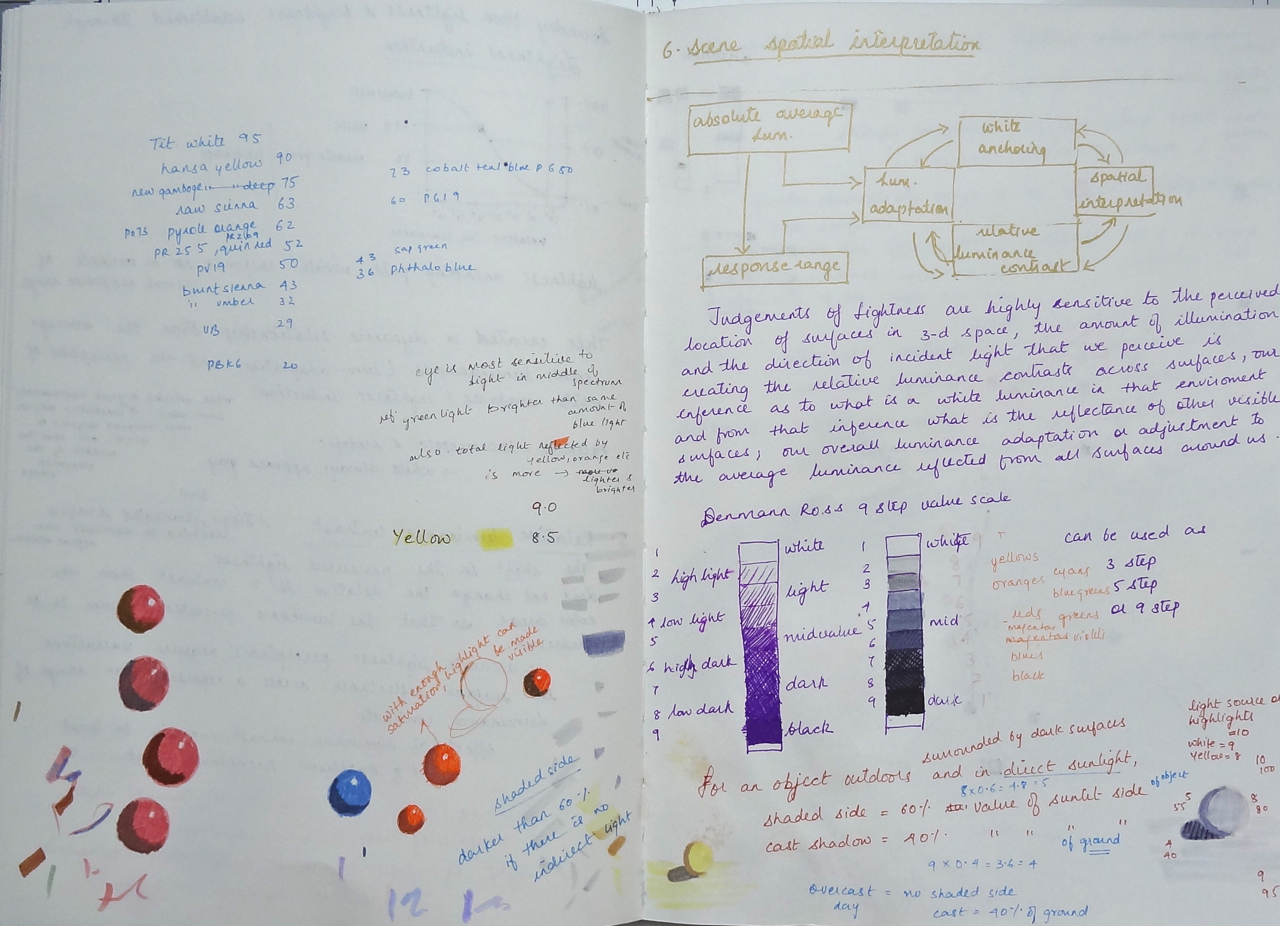 Tit white 95
hansa yellow 90
new gamboge deep 75
raw sienna 63
PO73 pyrole orange 62
PR209
PR 255, quin red 52
PV19 50
burnt sienna 43
" umber 32
UB 29
PBK6 20
73 cobalt teal blue PG50
60 PG19
43 sap green
36 phthalo blue
eye is most sensitive to
light in middle of
spectrum
ref green light brighter than same
amount of
blue light
also. total light reflected by
yellow, orange etc
is more →
lighter &
brighter
9.0
Yellow 8.5
with enough
saturation, highlight can
be made
visible
shaded side
darker than 60%
if there is no
indirect light
6. Scene spatial interpretation
absolute average
lum.
white
anchoring
lum.
adaptation
spatial
interpretation
relative
luminance
contrast
response range
Judgements of lightness are highly sensitive to the perceived
location of surfaces in 3-d space, the amount of illumination
and the direction of incident light that we perceive is
creating the relative luminance contrasts across surfaces, our
inference as to what is a white luminance in that enviroment
and from that inference what is the reflectance of other visible
surfaces, our overall luminance adaptation or adjustment to
the average luminance reflected from all surfaces around us.
Denmann Ross 9 step value scale
1 white
2 high light
3 light
4 low light
5 midvalue
6 high dark
7 dark
8 low dark
9 black
1 white
2
3
4
5 mid
6
7
8
9 dark
yellows
oranges cyans
bluegreens
reds greens
magentas
magentas violets
blues
black
can be used as
3 step
5 step
or 9 step
light source or
highlights
=10
white = 9
Yellow = 8
surrounded by dark surfaces
For an object outdoors and in direct sunlight,
8 x 0.6 = 4.8 = 5
shaded side = 60% value of sunlit side of object
cast shadow = 40% " " " " of ground
9 x 0.4 = 3.6 = 4
overcast = no shaded side
day
cast = 40% of ground
10
100
5
55
8
80
4
40
9
95